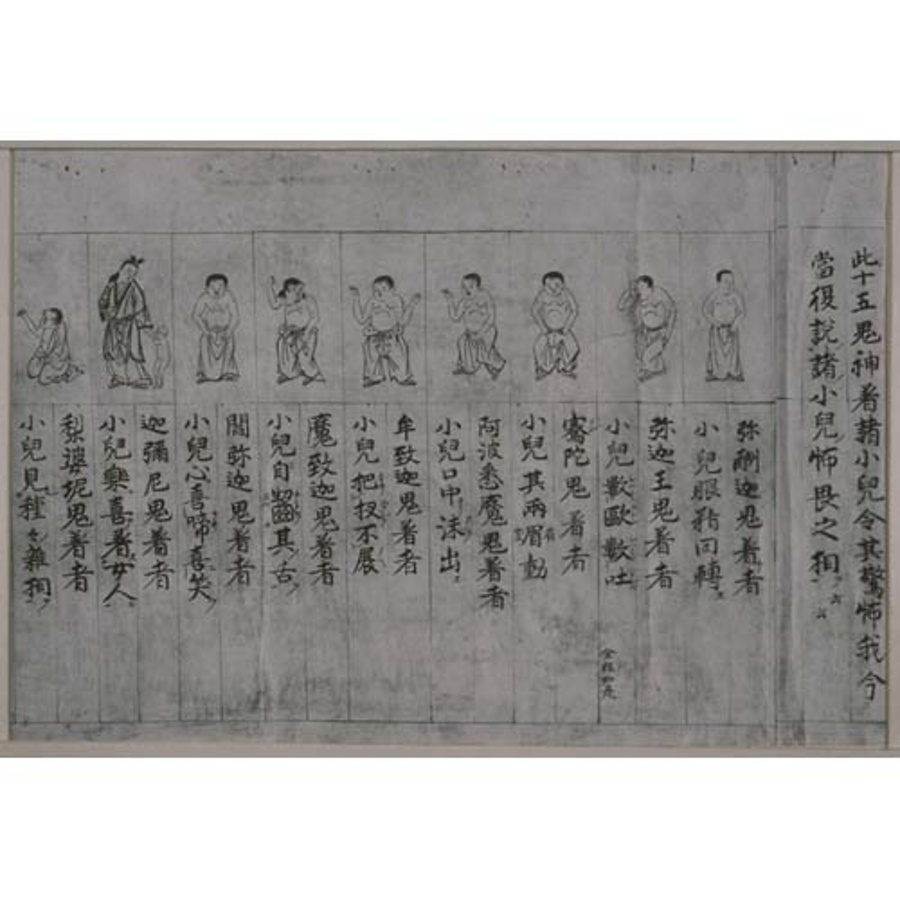 此十五鬼神着諸小兒令其驚怖我今
當復説諸小兒怖畏之相
弥酬迦鬼着者
小兒眼精回轉
弥迦王鬼着者
小兒數歐數吐
騫陀鬼着者
小兒其兩眉動
阿波悉魔鬼着者
小兒口中沫出
牟致迦鬼着者
小兒把拳不展
魔致迦鬼着者
小兒自齧其舌
閻弥迦鬼着者
小兒心喜啼喜笑
迦彌尼鬼着者
小兒樂喜着女人
梨婆坭鬼着者
小兒見種々雜相